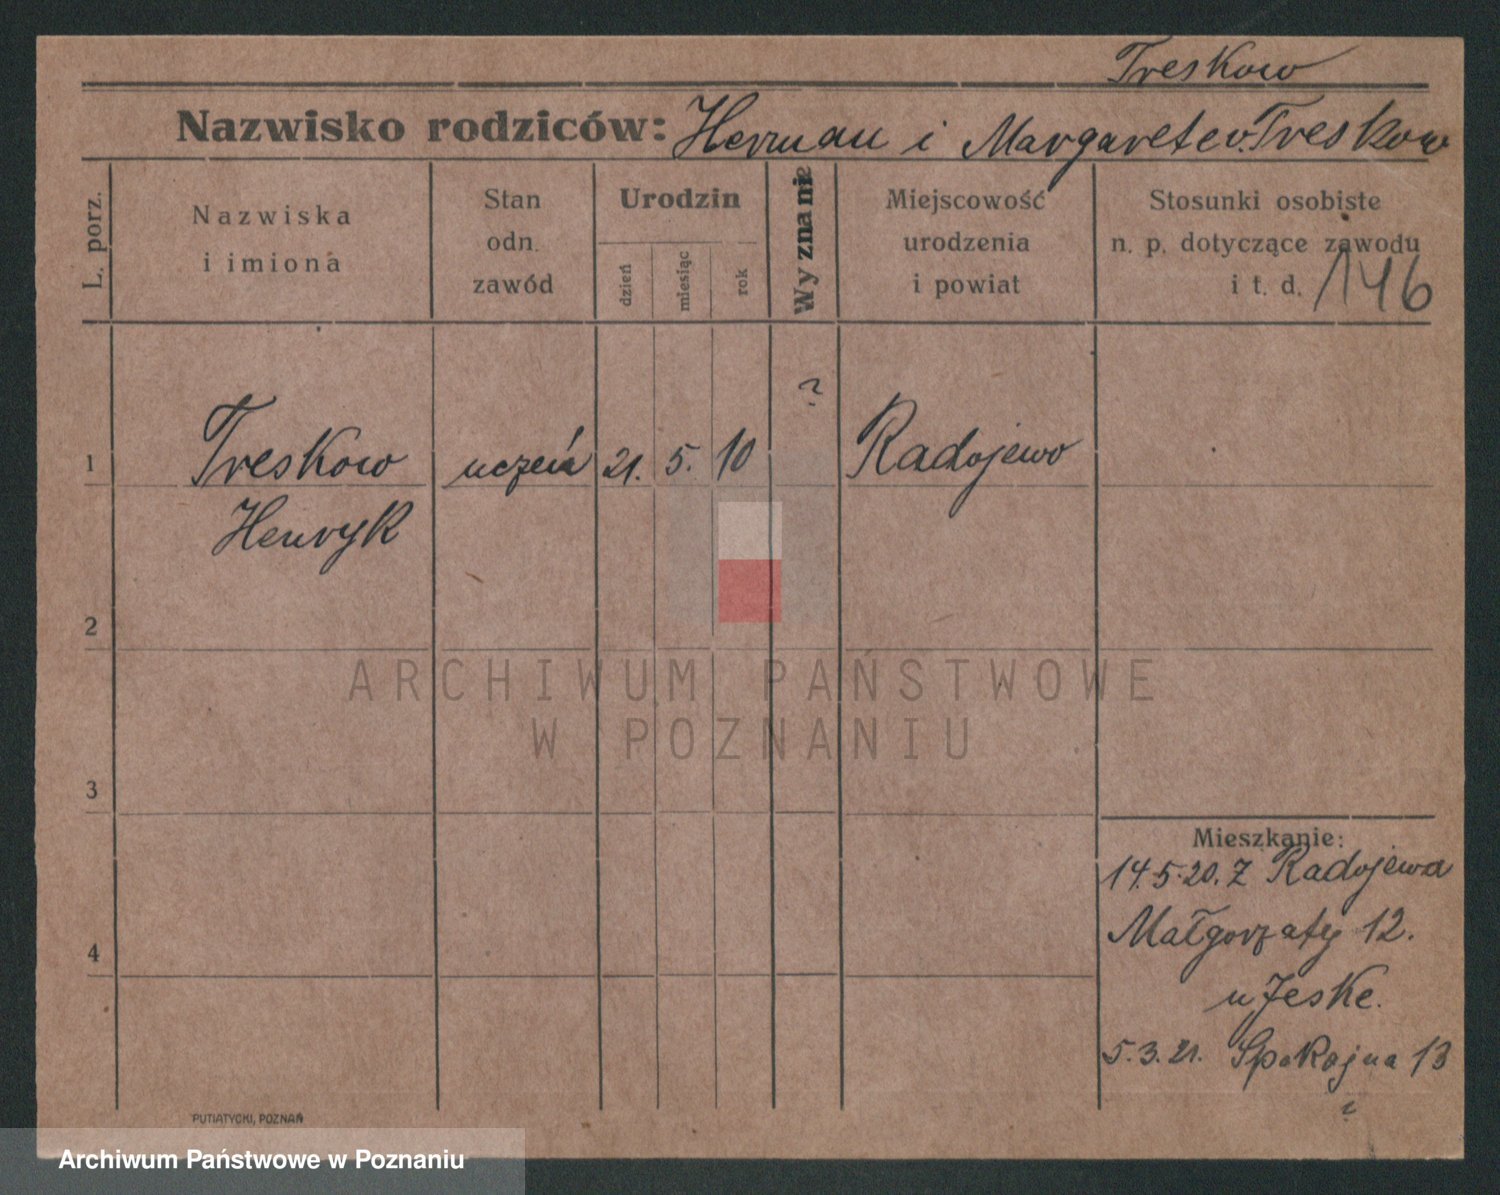 Treskow
Nazwisko rodziców: Herman i Margarete v. Treskow
L. porz.
Nazwiska
i imiona
Stan
odn.
zawód
Urodzin
dzień
miesiąc
rok
Wyznanie
Miejscowość
urodzenia
i powiat
Stosunki osobiste
n. p. dotyczące zawodu
i t. d. 146
1 Treskow uczeń 21. 5. 10 ? Radojewo
Henryk
2
3
4
Mieszkanie:
14.5.20. Z Radojewa
Małgorzaty 12.
u Jeske.
5.3.21. Spokojna 13
PUTIATYCKI, POZNAŃ
ARCHIWUM PAŃSTWOWE
W POZNANIU
Archiwum Państwowe w Poznaniu